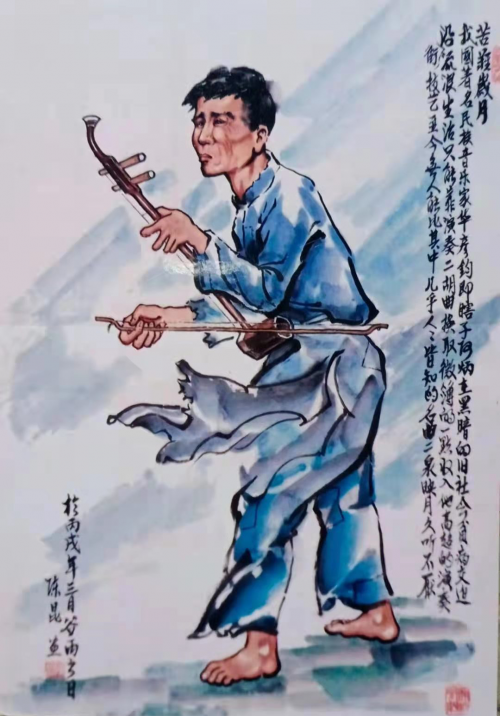 苦难岁月
我国著名民族音乐家华彦钧即瞎子阿炳在黑暗的旧社会贫病交迫
沿街流浪生活只能靠演奏二胡曲换取微薄的一点收入他高超的演奏
技艺至今无人能比其中几乎人人皆知的名曲二泉映月久听不厌
於丙戌年三月谷雨之日
陈昆画